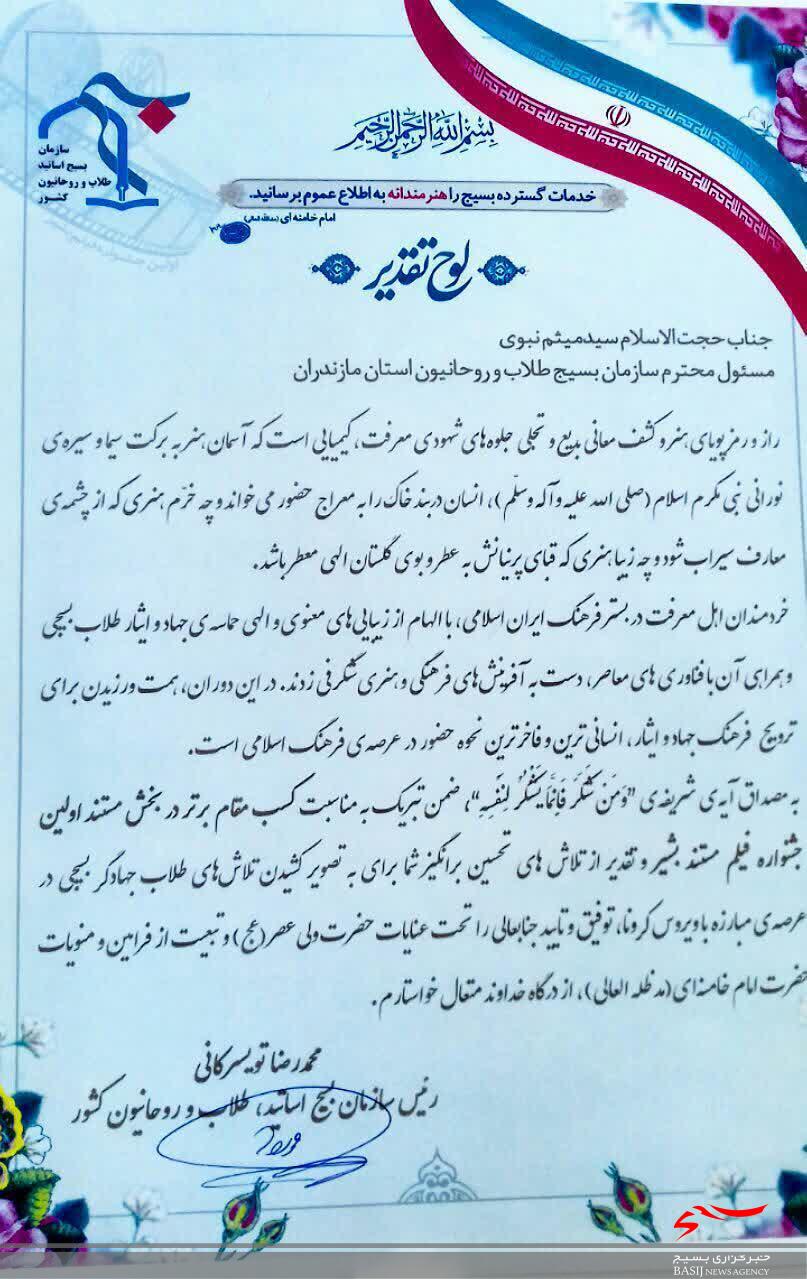 بسم الله الرحمن الرحیم
سازمان
بسیج اساتید
طلاب و روحانیون
کشور
خدمات گسترده بسیج را هنرمندانه به اطلاع عموم برسانید.
امام خامنه ای (مدظله العالی)
لوح تقدیر
جناب حجت الاسلام سید میثم نبوی
مسئول محترم سازمان بسیج طلاب و روحانیون استان مازندران
راز و رمز پویای هنر و کشف معانی بدیع و تجلی جلوه های شهودی معرفت، کیمیایی است که آسمان هنر به برکت سیما و سیره ی
نورانی نبی مکرم اسلام (صلی الله علیه و آله وسلّم)، انسان دربند خاک را به معراج حضور می خواند و چه خرّم هنری که از چشمه ی
معارف سیراب شود و چه زیبا هنری که قبای پرنیانش به عطر و بوی گلستان الهی معطر باشد.
خردمندان اهل معرفت در بستر فرهنگ ایران اسلامی، با الهام از زیبایی های معنوی و الهی حماسه ی جهاد و ایثار طلاب بسیجی
و همراهی آن با فناوری های معاصر، دست به آفرینش های فرهنگی و هنری شگرفی زدند. در این دوران، همت ورزیدن برای
ترویج فرهنگ جهاد و ایثار، انسانی ترین و فاخرترین نحوه حضور در عرصه ی فرهنگ اسلامی است.
به مصداق آیه ی شریفه ی "وَمَن شَكَرَ فَإِنَّمَا يَشْكُرُ لِنَفْسِهِ"، ضمن تبریک به مناسبت کسب مقام برتر در بخش مستند اولین
جشنواره فیلم مستند بشیر و تقدیر از تلاش های تحسین برانگیز شما برای به تصویر کشیدن تلاش های طلاب جهادگر بسیجی در
عرصه ی مبارزه با ویروس کرونا، توفیق و تایید جنابعالی را تحت عنایات حضرت ولی عصر (عج) و تبعیت از فرامین و منویات
حضرت امام خامنه ای (مدظله العالی)، از درگاه خداوند متعال خواستارم.
محمدرضا تویسرکانی
رئیس سازمان بسیج اساتید، طلاب و روحانیون کشور
خبرگزاری بسیج
BASIJ NEWS AGENCY